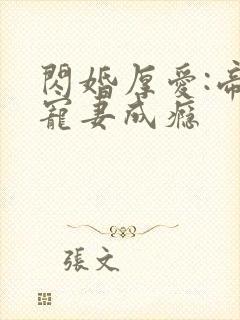 閃婚厚愛:帝
寵妻成瘾
張文